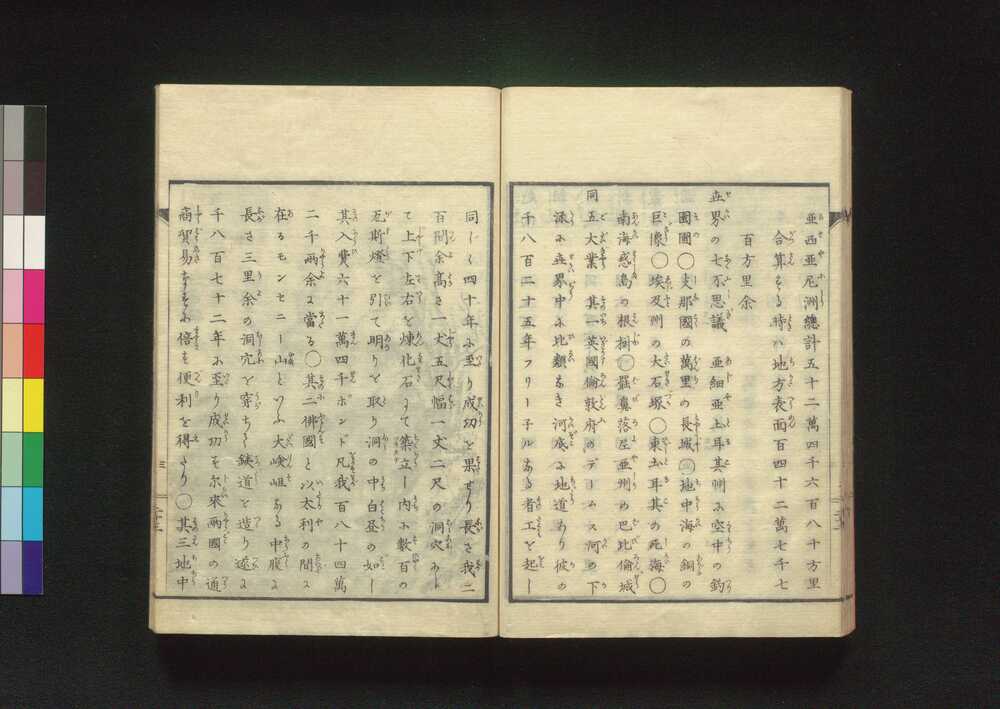 亜西亜尼洲總計五十二萬四千六百八十方里
合算する時ハ地方表面百四十二萬七千七
百方里余
世界の七不思議　亜細亜上耳其州ホ空中の釣
園圃〇支那國の萬里の長城〇地中海の銅の
巨像〇埃及州の大石塚〇東土耳其の死海〇
南海惑島の根掛〇羅鼻落屋亜州の巴比倫城
同五大業　其一英國倫敦府のデームス河の下
流ホ世界中ホ比類なき河底ホ地道あり彼の
千八百二十五年フリー子ルなる者工を起し
同じく四十年ホ至り成功を果せり長さ我二
百間余高さ一丈五尺幅一丈二尺の洞穴あり
て上下左右を煉化石にて築立し内ホ数百の
瓦斯燈を引て明りを取り洞の中白昼の如し
其入費六十一萬四千ポンド凡我百八十四萬
二千両余に當る〇其二佛國と以太利の間に
在るモンセニー山といふ大嶮岨なる中腹に
長さ三里余の洞穴を穿ち鉄道を造り遂に
千八百七十二年ホ至り成功を尓来兩國の通
商貿易ますますホ倍を便利を得たり〇其三地中